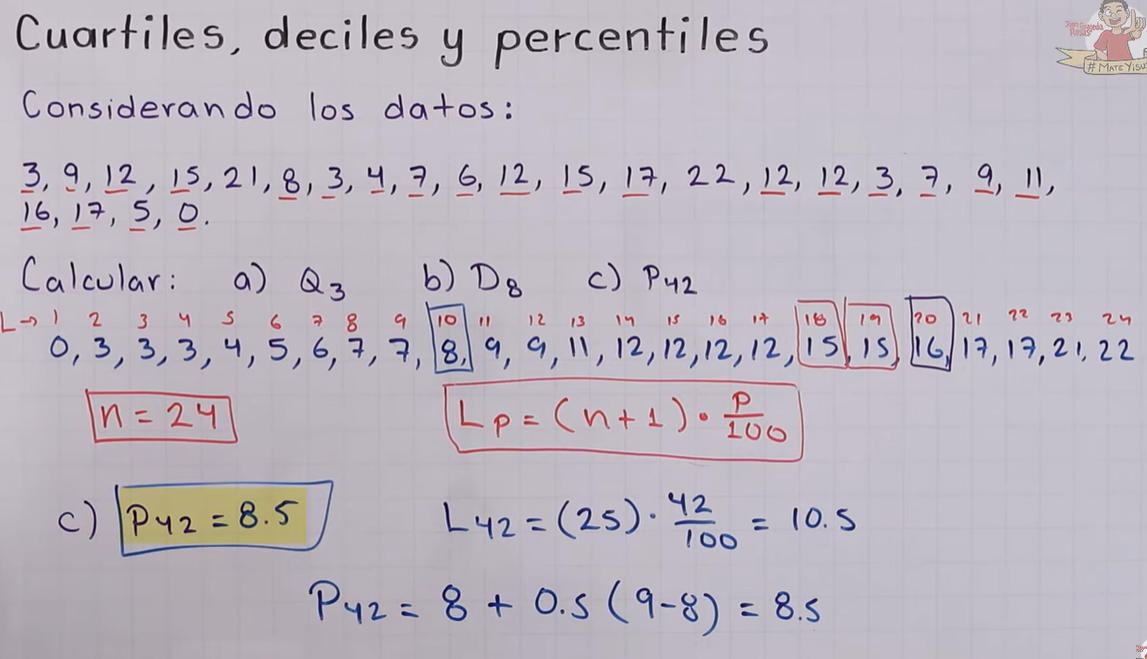 Cuartiles, deciles y percentiles
#MATEYISUS
Considerando los datos:
3, 9, 12, 15, 21, 8, 3, 4, 7, 6, 12, 15, 17, 22, 12, 12, 3, 7, 9, 11,
16, 17, 5, 0.
Calcular: a) Q3 b) D8 c) P42
L→ 1 2 3 4 5 6 7 8 9 10 11 12 13 14 15 16 17 18 19 20 21 22 23 24
0, 3, 3, 3, 4, 5, 6, 7, 7, 8, 9, 9, 11, 12, 12, 12, 12, 15, 15, 16, 17, 17, 21, 22
n = 24 Lp = (n+1) · p/100
c) P42 = 8.5 L42 = (25) · 42/100 = 10.5
P42 = 8 + 0.5 (9-8) = 8.5